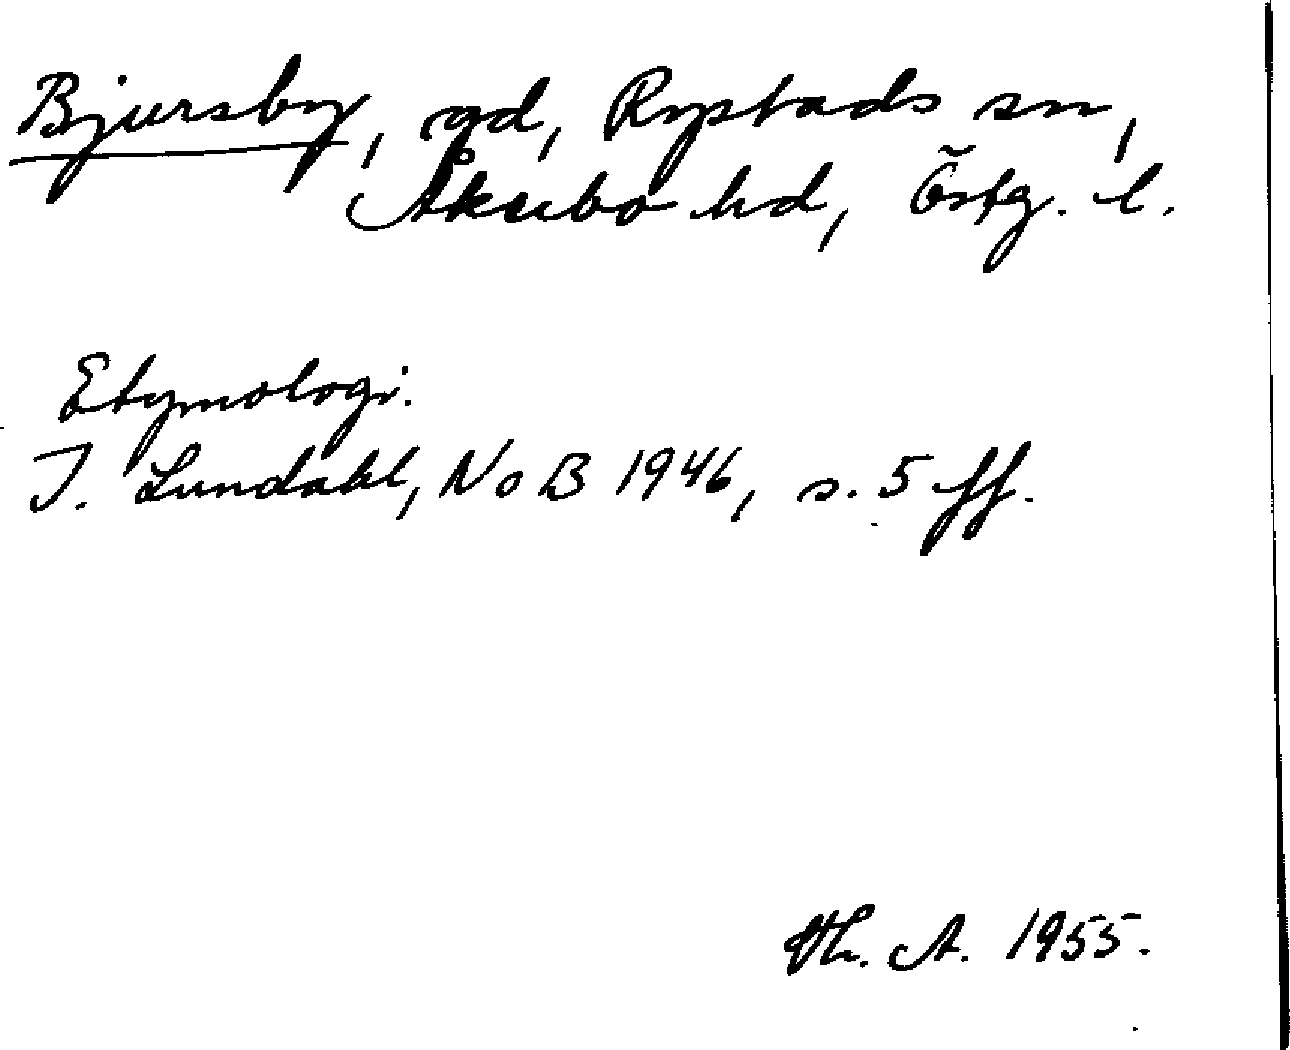 Bjursby, gd, Rystads sn,
Åkerbo hd, Östg. l.
Etymologi.
I. Lundahl, NoB 1946, s. 5 ff.
Th. A. 1955.